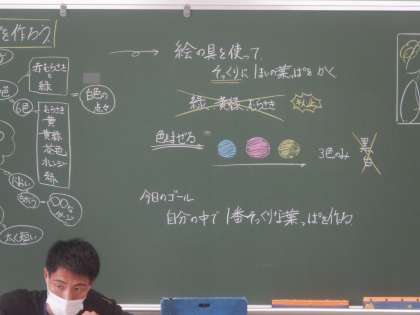 を作ろう
赤むらさき
と
緑
6色
むらさき
黄
黄緑
茶色
オレンジ
緑
=
白色の
点々
太く短い
→ 絵の具を使って、
そっくりに1まいの葉っぱをかく
緑、黄緑、むらさき
色まぜる
3色のみ
黒
白
今日のゴール
自分の中で1番そっくりな葉っぱを作る